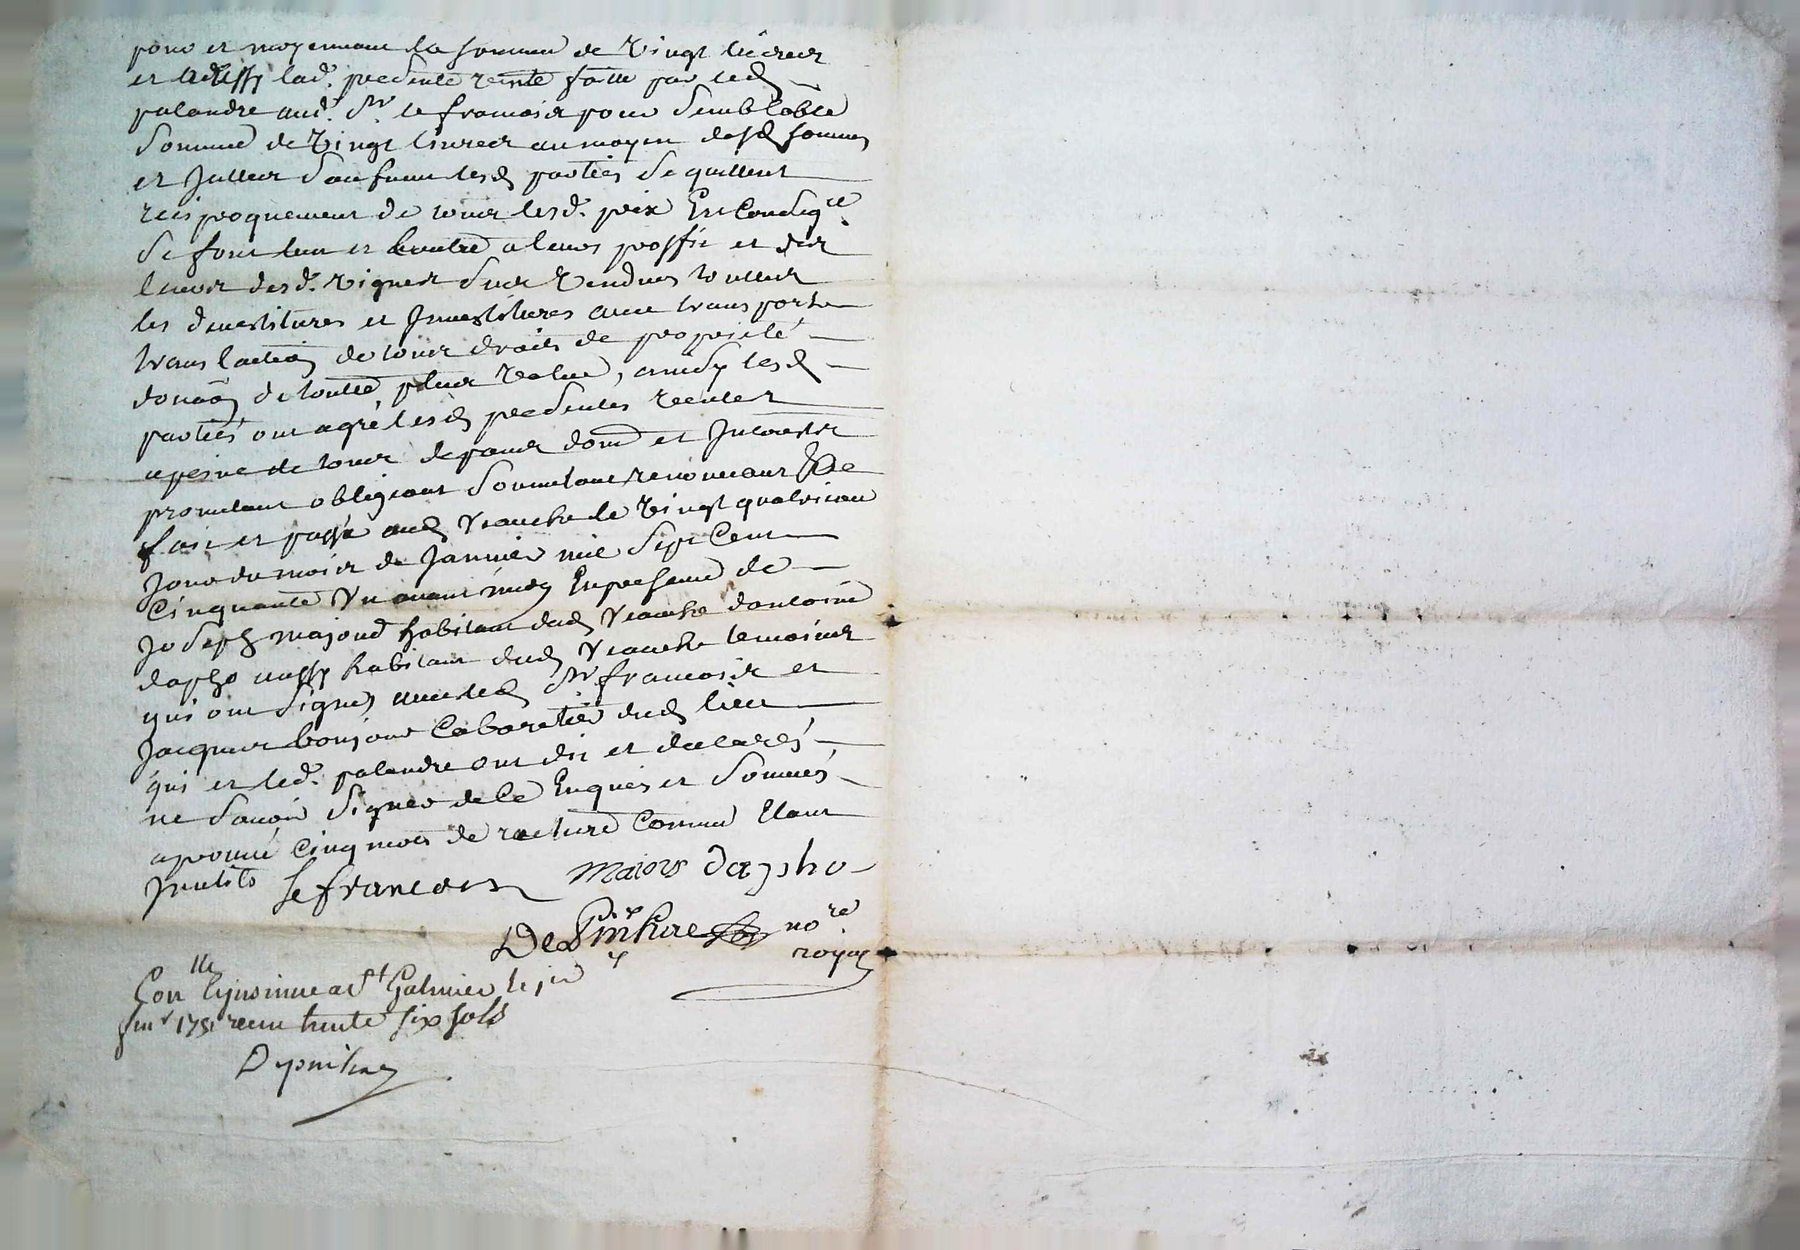 pour et moyennant la somme de vingt livres
et aussy lad. presente vente faitte par led
palandre aud. Sr. le francois pour semblable
somme de vingt livres au moyen desd sommes
et
lesd parties se quittent
reciproquement de tous lesd. prix En Conseqce
se font lun et lautre a leurs proffit et des
leurs desd. vignes sus vendues touttes
les devestitures et Investitures avec transport
translation de tous droits de proprieté
donaõn de toutte plus value, ainsy lesd
parties ont agré lesd presentes ventes
a peine de tous depans dom et Interests
promettant obligeant soumettant renonceant &c
fait et passé aud Veauche le vingt quatrieme
Jour du mois de Janvier mil sept Cent
Cinquante Un avant midy En presence de
Joseph majour habitant dud Veauche dantoine
dapho aussy habitant dud Veauche temoins
qui ont signes avec led Sr francois et
Jacques bonjour Cabaretier dud lieu
qui et led. palandre ont dit et declarés
ne savoir signer de ce Enquis et sommés
aprouvé Cinq mots de rature Comme Etant
Inutils le francois majors dapho
Depinhac nore
royal
Conlle &insinué a St Galmier le 1er
fvr 1751 receu trente six sols
Depinhac